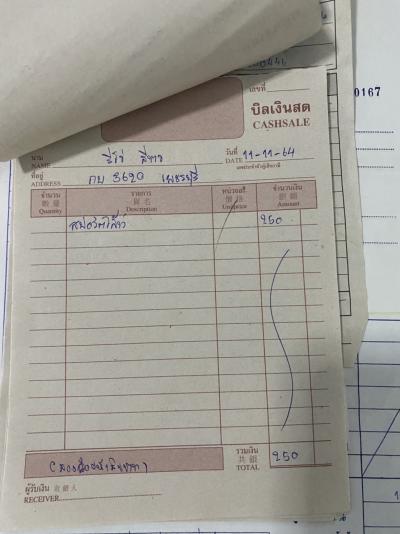 เลขที่
0167
บิลเงินสด
CASHSALE
นาม
NAME
วันที่ 11-11-64
DATE
เลขประจำตัวผู้เสียภาษี
ที่อยู่ กบ 8690 เพชรบุรี
ADDRESS
จำนวน รายการ หน่วยละ จำนวนเงิน
數量 貨名 價格 銀額
Quantity Description Unitprice Amount
250
รวมเงิน
共銀
TOTAL 250
(สองร้อยห้าสิบบาท)
ผู้รับเงิน 收銀人
RECEIVER